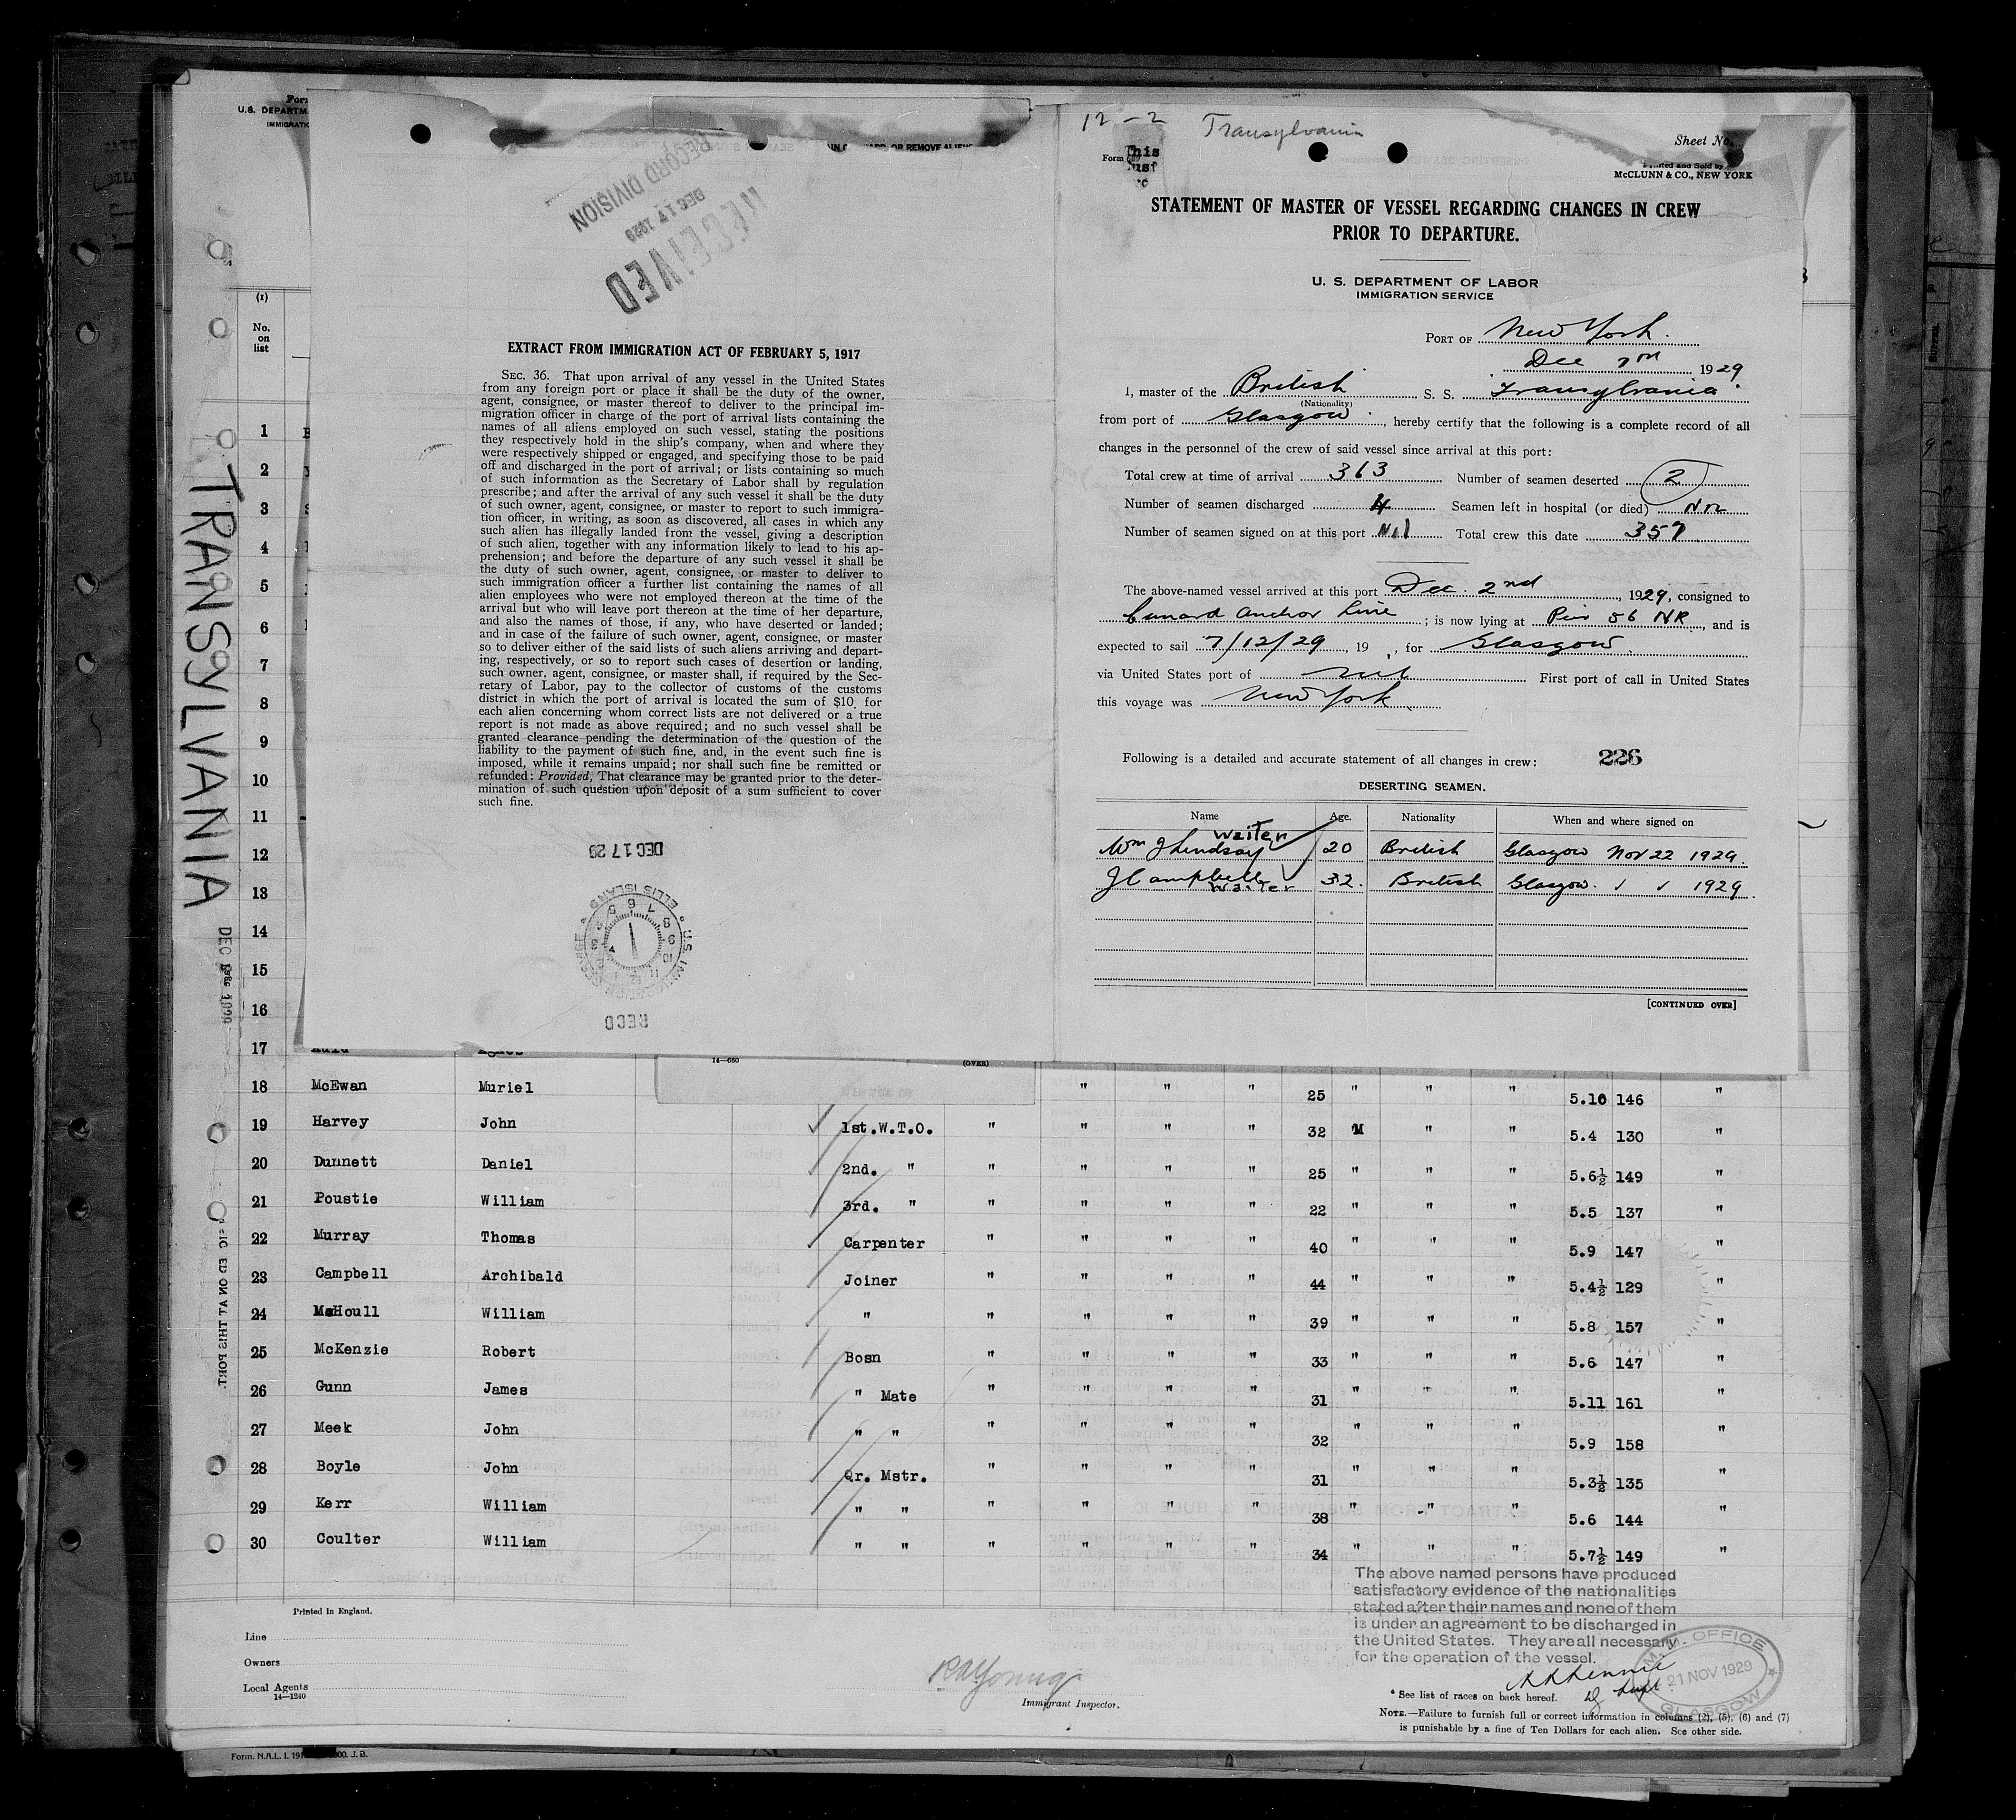 TRANSYLVANIA
U.S. DEPARTM
IMMIGRATIC
(1)
No.
on
list
1
2
3
4
5
6
7
8
9
10
11
12
13
14
15
16
17
RECORD DIVISION
DEC 17 1929
RECEIVED
EXTRACT FROM IMMIGRATION ACT OF FEBRUARY 5, 1917
SEC. 36. That upon arrival of any vessel in the United States
from any foreign port or place it shall be the duty of the owner,
agent, consignee, or master thereof to deliver to the principal im-
migration officer in charge of the port of arrival lists containing the
names of all aliens employed on such vessel, stating the positions
they respectively hold in the ship's company, when and where they
were respectively shipped or engaged, and specifying those to be paid
off and discharged in the port of arrival; or lists containing so much
of such information as the Secretary of Labor shall by regulation
prescribe; and after the arrival of any such vessel it shall be the duty
of such owner, agent, consignee, or master to report to such immigra-
tion officer, in writing, as soon as discovered, all cases in which any
such alien has illegally landed from the vessel, giving a description
of such alien, together with any information likely to lead to his ap-
prehension; and before the departure of any such vessel it shall be
the duty of such owner, agent, consignee, or master to deliver to
such immigration officer a further list containing the names of all
alien employees who were not employed thereon at the time of the
arrival but who will leave port thereon at the time of her departure,
and also the names of those, if any, who have deserted or landed;
and in case of the failure of such owner, agent, consignee, or master
so to deliver either of the said lists of such aliens arriving and depart-
ing, respectively, or so to report such cases of desertion or landing,
such owner, agent, consignee, or master shall, if required by the Sec-
retary of Labor, pay to the collector of customs of the customs
district in which the port of arrival is located the sum of $10 for
each alien concerning whom correct lists are not delivered or a true
report is not made as above required; and no such vessel shall be
granted clearance pending the determination of the question of the
liability to the payment of such fine, and, in the event such fine is
imposed, while it remains unpaid; nor shall such fine be remitted or
refunded: Provided, That clearance may be granted prior to the deter-
mination of such question upon deposit of a sum sufficient to cover
such fine.
DEC 17 29
RECD
14—680
(OVER)
12-2 Transylvania
Form
Sheet No.
McCLUNN & CO., NEW YORK
STATEMENT OF MASTER OF VESSEL REGARDING CHANGES IN CREW
PRIOR TO DEPARTURE.
U. S. DEPARTMENT OF LABOR
IMMIGRATION SERVICE
PORT OF New York.
Dec 7th 1929
I, master of the British S. S. Transylvania
(Nationality)
from port of Glasgow, hereby certify that the following is a complete record of all
changes in the personnel of the crew of said vessel since arrival at this port:
Total crew at time of arrival 363 Number of seamen deserted 2
Number of seamen discharged 4 Seamen left in hospital (or died) Nil
Number of seamen signed on at this port Nil Total crew this date 357
The above-named vessel arrived at this port Dec. 2nd, 1929, consigned to
Cunard Anchor Line; is now lying at Pier 56 NR, and is
expected to sail 7/12/29, 19 , for Glasgow.
via United States port of nil First port of call in United States
this voyage was New York
Following is a detailed and accurate statement of all changes in crew: 226
DESERTING SEAMEN.
Name Age. Nationality When and where signed on
Wm J Lindsay Waiter 20 British Glasgow Nov 22 1929.
J Campbell Waiter 32. British Glasgow. " " 1929.
[CONTINUED OVER]
18 McEwan Muriel " " " 25 " " " 5.10 146 "
19 Harvey John 1st.W.T.O. " " " " 32 M " " 5.4 130 "
20 Dunnett Daniel 2nd. " " " " " 25 " " " 5.6½ 149 "
21 Poustie William 3rd. " " " " " 22 " " " 5.5 137 "
22 Murray Thomas Carpenter " " " " 40 " " " 5.9 147 "
23 Campbell Archibald Joiner " " " " 44 " " " 5.4½ 129 "
24 MacHoull William " " " " " 39 " " " 5.8 157 "
25 McKenzie Robert Bosn " " " " 33 " " " 5.6 147 "
26 Gunn James " Mate " " " " 31 " " " 5.11 161 "
27 Meek John " " " " " " 32 " " " 5.9 158 "
28 Boyle John Qr. Mstr. " " " " 31 " " " 5.3½ 135 "
29 Kerr William " " " " " " 38 " " " 5.6 144 "
30 Coulter William " " " " " " 34 " " " 5.7½ 149 "
The above named persons have produced
satisfactory evidence of the nationalities
stated after their names and none of them
is under an agreement to be discharged in
the United States. They are all necessary
for the operation of the vessel.
M.M. OFFICE
21 NOV 1929
GLASGOW
Printed in England.
Line
Owners
Local Agents
14—1240
R A Young
Immigrant Inspector.
* See list of races on back hereof.
NOTE.—Failure to furnish full or correct information in columns (2), (5), (6) and (7)
is punishable by a fine of Ten Dollars for each alien. See other side.